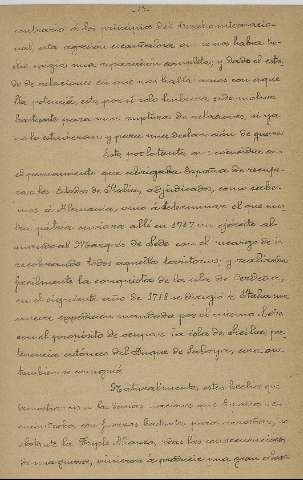 contrario á los principios del derecho internacio-
nal, esta agresion
una reparación completa; y dado el esta-
do de relaciones en que nos hallabamos con aque-
lla potencia, esto por si solo hubiera sido motivo
bastante para una ruptura de relaciones, si ya
no lo estuvieran y para una declaración de guerra
Esto, por lo tanto,
el pensamiento que abrigaba España de recupe-
rar los Estados de Italia, adjudicados, como sabe-
mos á Alemania, vino á determinar el que nues-
tra patria enviara allí en 1717 un ejército al
mando del Marqués de Lede con el encargo de ir
recobrando todos aquellos territorios; y realizada
facilmente la conquista de la isla de Cerdeña,
en el siguiente año de 1718 se dirigió á Italia una
nueva expedición mandada por el mismo Lede
con el propósito de ocupar la isla de Sicilia per-
teneciente entonces del Duque de Saboya, cosa que
tambien se consiguió.
Naturalmente, estos hechos que
demostraron á las demas naciones que España
con fuerzas bastantes para
la Triple Alianza, las consecuencias
de una guerra, vinieron á producir una gran